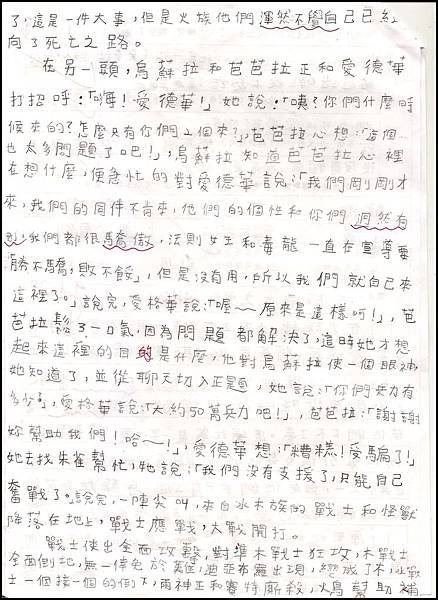 了,這是一件大事,但是火族他們渾然不覺自己已經
向了死亡之路。
在另一頭,烏蘇拉和芭芭拉正和愛德華
打招呼:「嗨!愛德華!」她說:「咦?你們什麼時
候來的?怎麼只有你們2個來?」,芭芭拉心想:「這個…
也太多問題了吧!」,烏蘇拉知道芭芭拉心裡
在想什麼,便急忙的對愛德華說:「我們剛剛才
來,我們的同伴不肯來,他們的個性和你們洞然有
別,我們都很驕傲,法則女王和毒龍一直在宣導要
「勝不驕,敗不餒」,但是沒有用,所以我們就自己來
這裡了。」說完,愛格華說:「喔~原來是這樣呵!」,芭
芭拉鬆了一口氣,因為問題都解決了,這時她才想
起來這裡的目的是什麼,他對烏蘇拉使一個眼神
她知道了,並從聊天切入正題,她說:「你們兵力有
多少?」,愛格華說:「大約50萬兵力吧!」,芭芭拉:「謝謝
妳幫助我們!哈~!」,愛德華想:「糟糕!受騙了!」
她去找朱雀幫忙,牠說:「我們沒有支援了,只能自己
奮戰了。」說完,一陣尖叫,來自冰木族的戰士和怪獸
降落在地上,戰士應戰,大戰開打。
戰士使出全面攻擊,對準木戰士狂攻,木戰士
全面倒地,無一倖免於難,迪亞布羅出現,變成了冰戰
士一個接一個的倒下,雨神正和賽特廝殺,火鳥幫助補